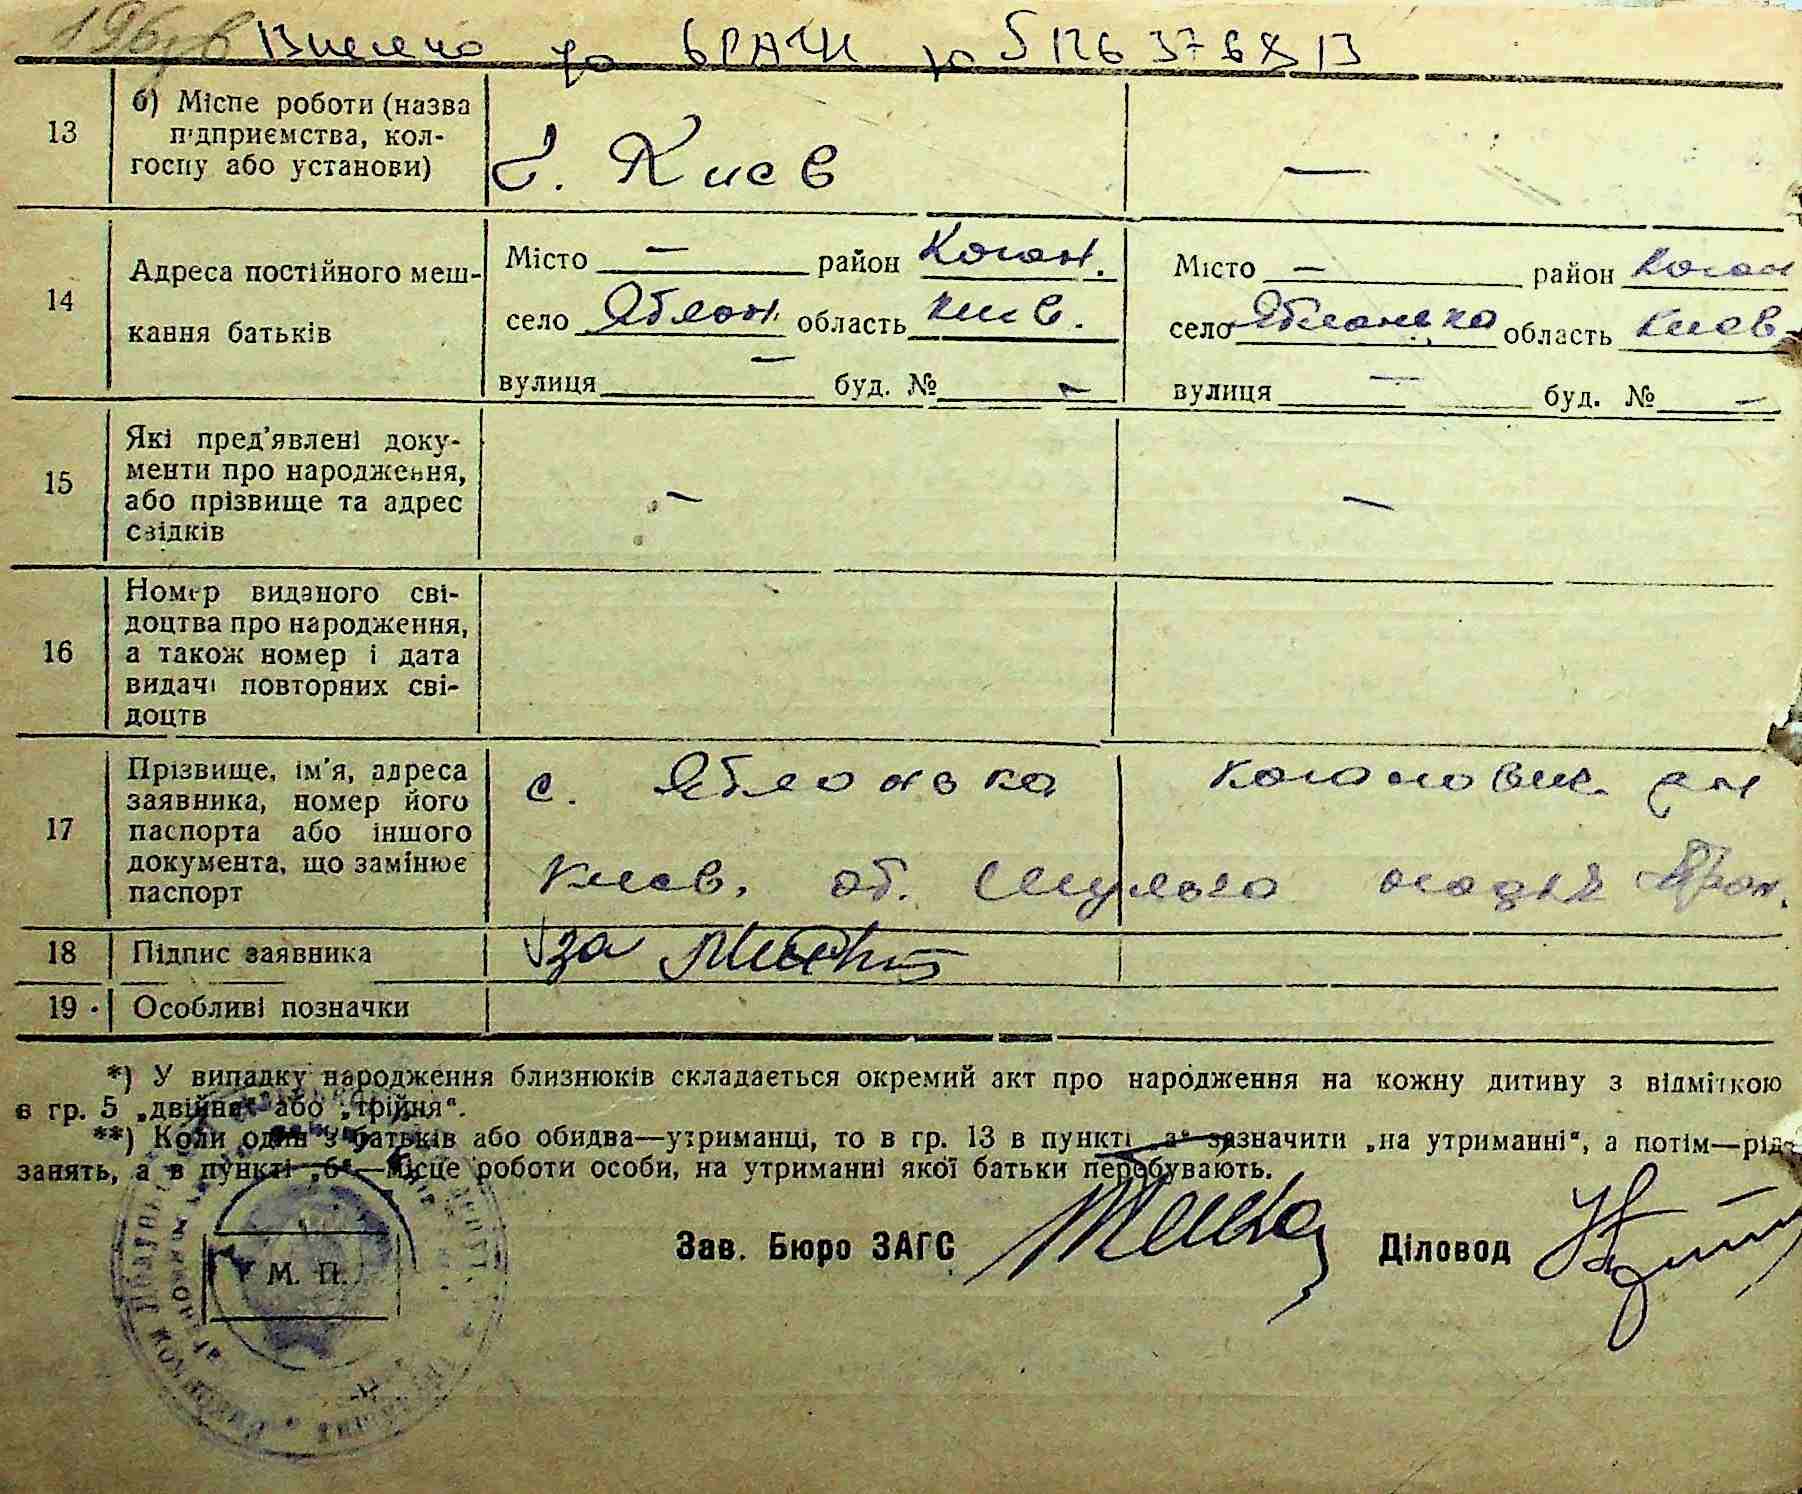 Внесено до
13
б) Місце роботи (назва
підприємства, кол-
госпу або установи)
г. Киев
—
14
Адреса постійного меш-
кання батьків
Місто — район Коган.
село Яблон. область Киев.
вулиця — буд. № —
Місто — район Коган
село Яблоновка область Киев
вулиця — буд. № —
15
Які пред'явлені доку-
менти про народження,
або прізвище та адрес
свідків
—
—
16
Номер виданого сві-
доцтва про народження,
а також номер і дата
видачі повторних сві-
доцтв
17
Прізвище, ім'я, адреса
заявника, номер його
паспорта або іншого
документа, що замінює
паспорт
с. Яблоновка
Киев. об. Шульга
18
Підпис заявника
за
19
Особливі позначки
*) У випадку народження близнюків складається окремий акт про народження на кожну дитину з відміткою
в гр. 5 „двійня“ або „трійня“.
**) Коли один з батьків або обидва—утриманці, то в гр. 13 в пункті „а“ зазначити „на утриманні“, а потім—рід
занять, а в пункті „б“—місце роботи особи, на утриманні якої батьки перебувають.
М. П.
Зав. Бюро ЗАГС
Діловод